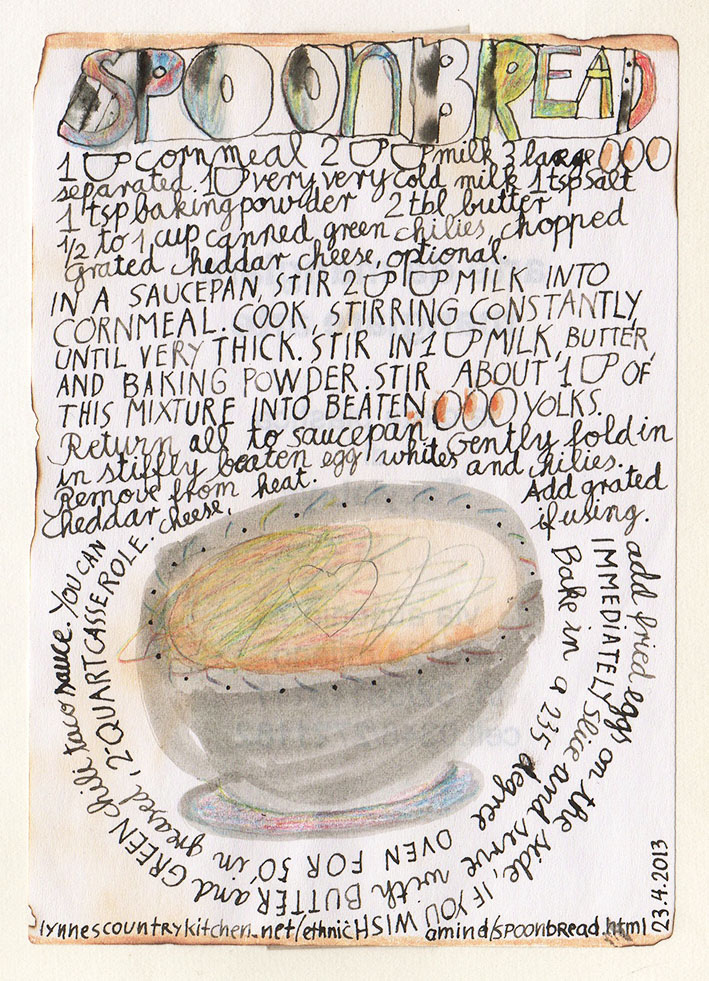 SPOONBREAD
1 cornmeal 2 milk 3 large
separated. 1 very very cold milk 1 tsp salt
1 tsp baking powder 2 tbl butter
1/2 to 1 cup canned green chilies, chopped
grated cheddar cheese, optional.
IN A SAUCEPAN, STIR 2 MILK INTO
CORNMEAL. COOK, STIRRING CONSTANTLY,
UNTIL VERY THICK. STIR IN 1 MILK, BUTTER,
AND BAKING POWDER. STIR ABOUT 1 OF
THIS MIXTURE INTO BEATEN YOLKS.
Return all to saucepan. Gently fold in
in stiffly beaten egg whites and chilies.
Remove from heat. Add grated
cheddar cheese, if using.
Bake in a 235 degree OVEN FOR 50' in greased, 2-QUART CASSEROLE.
IMMEDIATELY slice and serve with BUTTER and GREEN chili taco sauce. YOU CAN
add fried eggs on the side, IF YOU WISH
lynnescountrykitchen.net/ethnic amind/spoonbread.html
23.4.2013